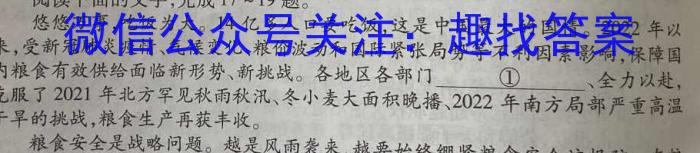 阅读下面的文字,完成17~19题。
悠悠万事,吃饭为大。
微信公众号关注:趣找答案
来,受新冠肺炎 粮价波动和国际紧张局势等不利因素影响,保障国
内粮食有效供给面临新形势、新挑战。各地区各部门①、全力以赴,
克服了2021年北方罕见秋雨秋汛、冬小麦大面积晚播、2022年南方局部严重高温
干旱的挑战,粮食生产再获丰收。
粮食安全是战略问题。越是风雨袭来,越要始终绷紧粮食安全